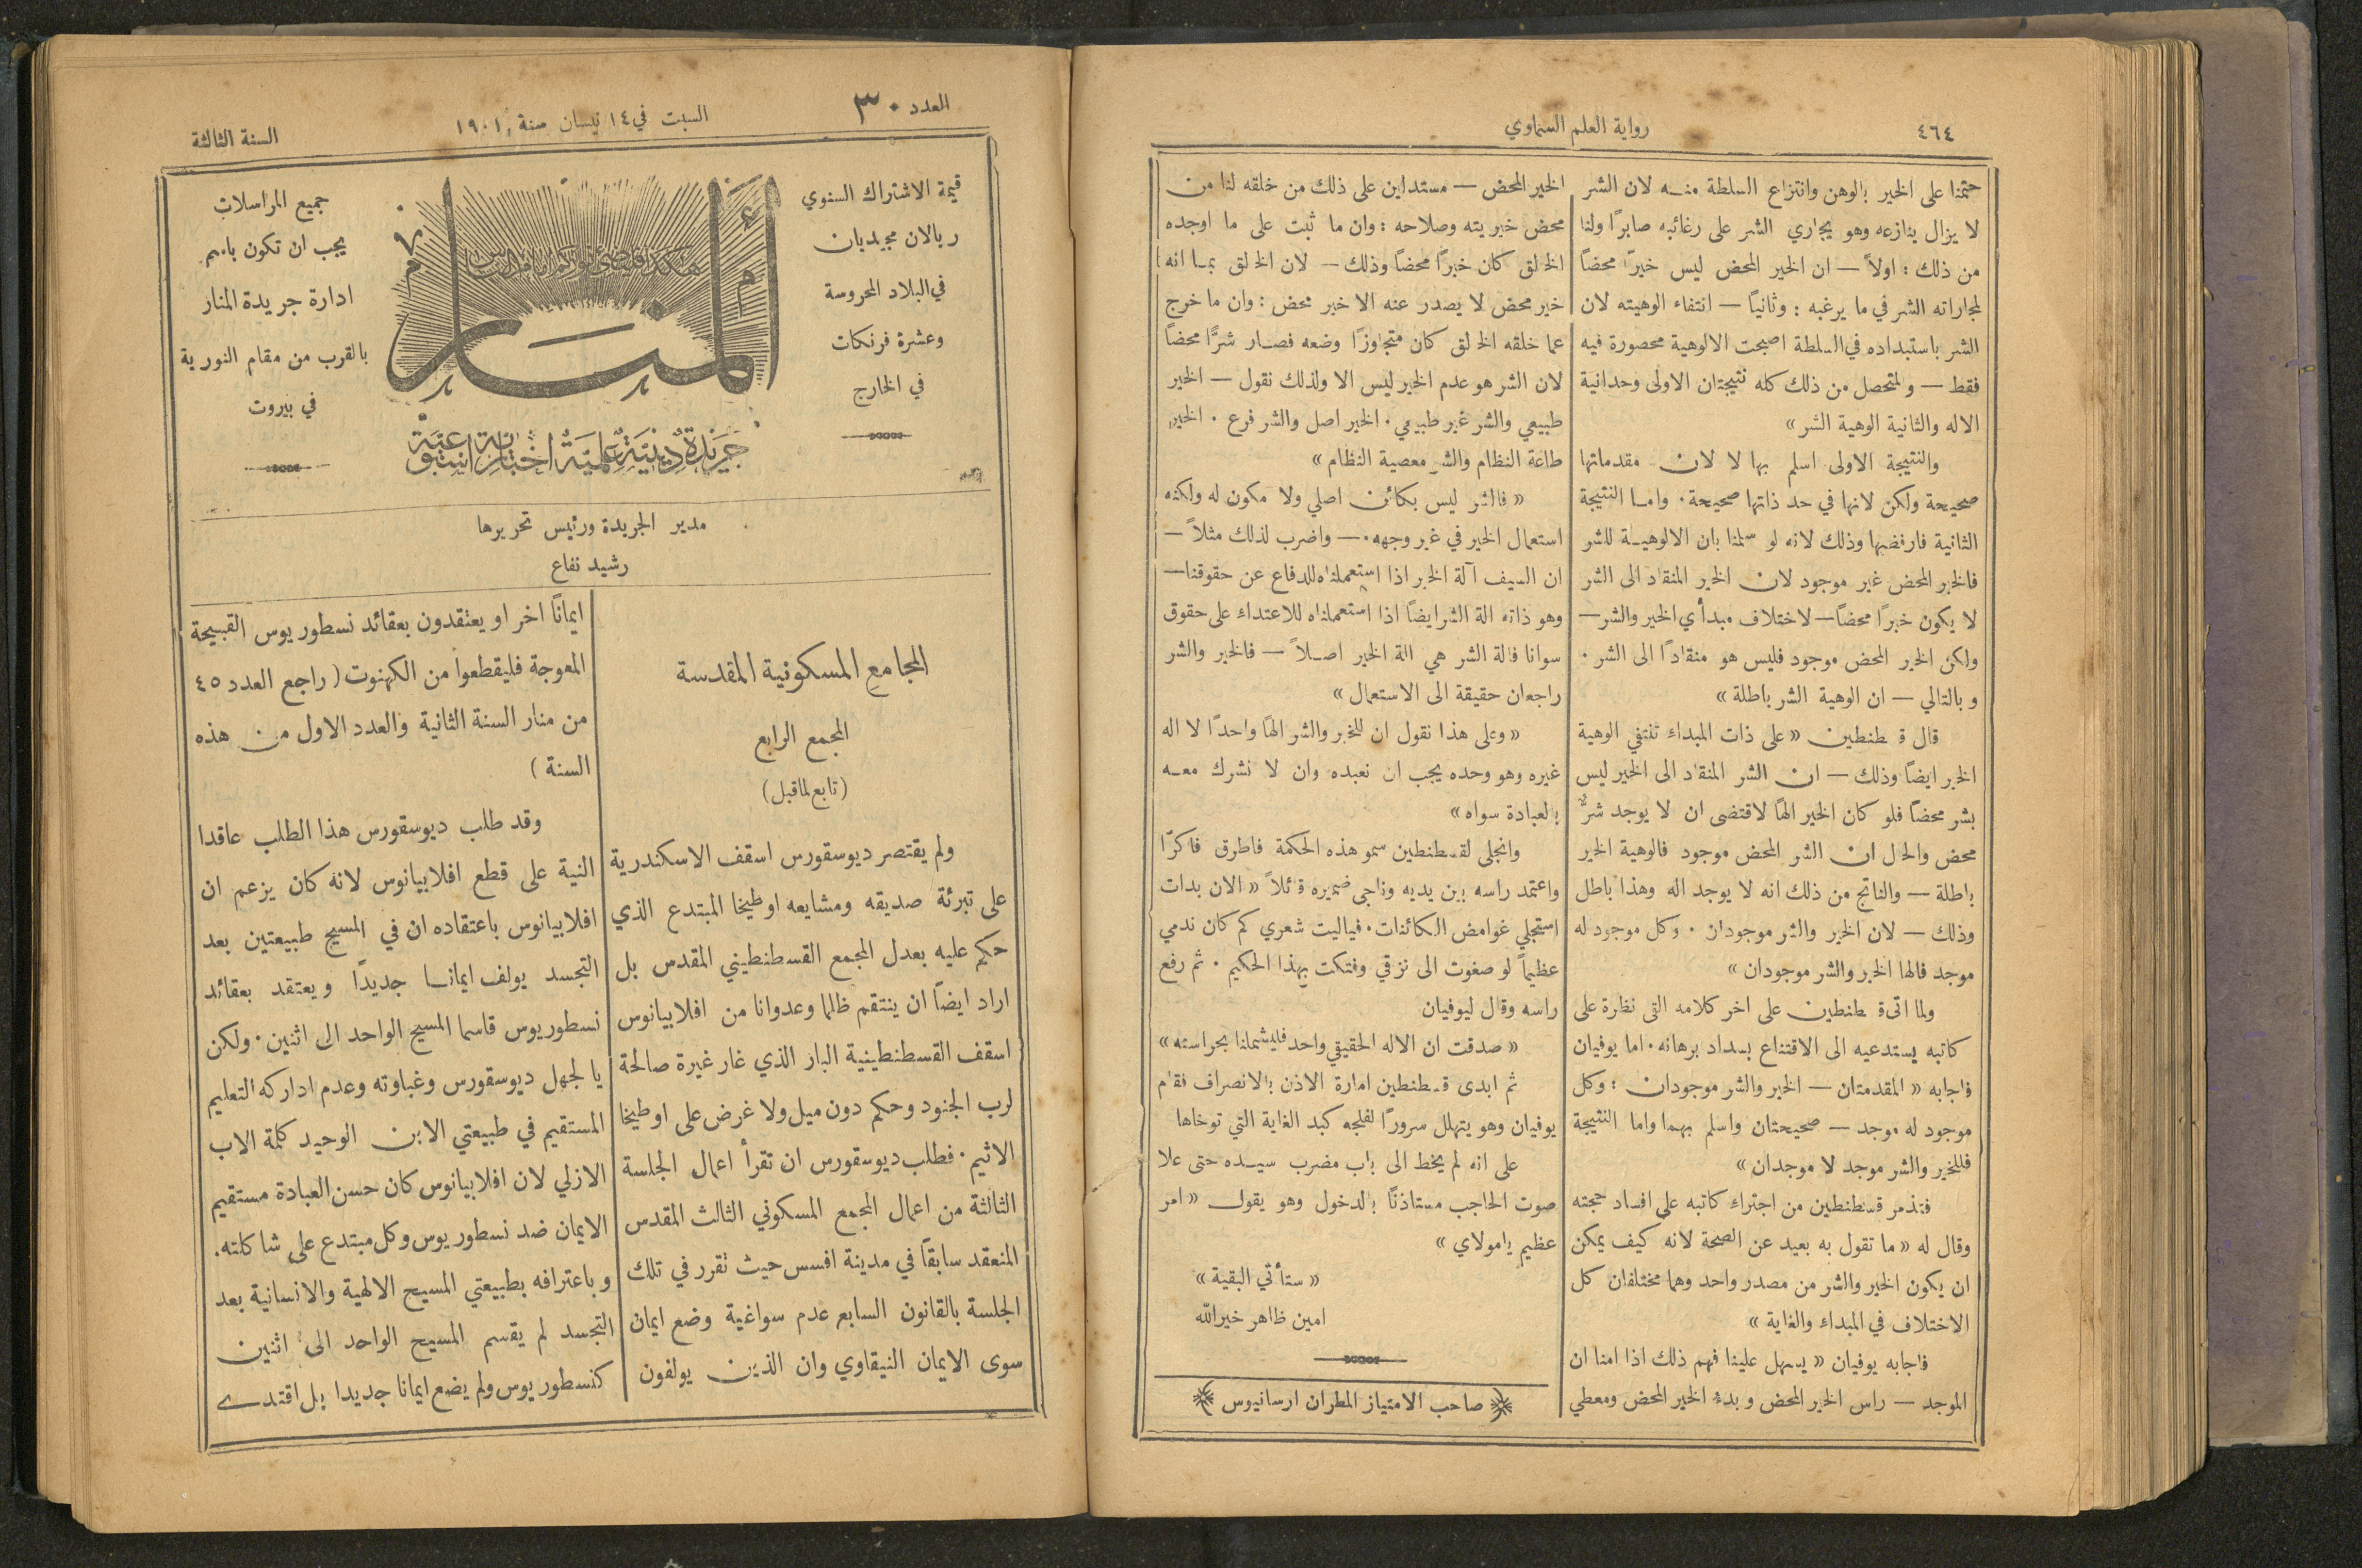 ٤٦٤
رواية العلم السماوي
حتمنا على الخير بالوهن وانتزاع السلطة منه لان الشر
لا يزال ينازعه وهو يجاري الشر على رغائبه صابرًا ولنا
من ذلك : اولاً — ان الخير المحض ليس خيرًا محضاً
لمجاراته الشر في ما يرغبه : وثانيًا — انتفاء الوهيته لان
الشر باستبداده في السلطة اصبحت الالوهية محصورة فيه
فقط — ولمتحصل من ذلك كله نتيجتان الاولى وحدانية
الاله والثانية الوهية الشر »
والنتيجة الاولى اسلم بها لا لان مقدماتها
صحيحة ولكن لانها في حد ذاتها صحيحة . واما النتيجة
الثانية فارفضها وذلك لانه لو سلمنا بان الالوهية للشر
فالخير المحض غير موجود لان الخير المنقاد الى الشر
لا يكون خيرًا محضاً — لاختلاف مبدأي الخير والشر —
ولكن الخير المحض موجود فليس هو منقادًا الى الشر .
وبالتالي — ان الوهية الشر باطلة »
قال قسطنطين « على ذات المبداء تنتفي الوهية
الخير ايضاً وذلك — ان الشر المنقاد الى الخير ليس
بشر محضاً فلو كان الخير الهاً لاقتضى ان لا يوجد شرٌّ
محض والحال ان الشر المحض موجود فالوهية الخير
باطلة — والناتج من ذلك انه لا يوجد اله وهذا باطل
وذلك — لان الخير والشر موجودان . وكل موجود له
موجد فالها الخير والشر موجودان »
ولما اتى قسطنطين على اخر كلامه القى نظرة على
كاتبه يستدعيه الى الاقتناع بسداد برهانه . اما يوفيان
فاجابه « المقدمتان — الخير والشر موجودان : وكل
موجود له موجد — صحيحتان واسلم بهما واما النتيجة
فللخير والشر موجد لا موجدان »
فتذمر قسطنطين من اجتراء كاتبه على افساد حجته
وقال له « ما تقول به بعيد عن الصحة لانه كيف يمكن
ان يكون الخير والشر من مصدر واحد وهما مختلفان كل
الاختلاف في المبداء والغاية »
فاجابه يوفيان « يسهل علينا فهم ذلك اذا امنا ان
الموجد — راس الخير المحض وبدء الخير المحض ومعطي
الخير المحض — مستدلين على ذلك من خلقه لنا من
محض خيريته وصلاحه : وان ما ثبت على ما اوجده
الخالق كان خيرًا محضاً وذلك — لان الخالق بما انه
خير محض لا يصدر عنه الا خير محض : وان ما خرج
عما خلقه الخالق كان متجاوزًا وضعه فصار شرًّا محضاً
لان الشر هو عدم الخير ليس الا ولذلك نقول — الخير
طبيعي والشر غير طبيعي . الخير اصل والشر فرع . الخير
طاعة النظام والشر معصية النظام »
« فالشر ليس بكائن اصلي ولا مكون له ولكنه
استعمال الخير في غير وجهه . — واضرب لذلك مثلاً —
ان السيف آلة الخير اذا استعملناه للدفاع عن حقوقنا —
وهو ذاته الة الشر ايضاً اذا استعملناه للاعتداء على حقوق
سوانا فالة الشر هي الة الخير اصلاً — فالخير والشر
راجعان حقيقة الى الاستعمال »
« وعلى هذا نقول ان للخير والشر الهاً واحدًا لا اله
غيره وهو وحده يجب ان نعبده وان لا نشرك معه
بالعبادة سواه »
وانجلى لقسطنطين سمو هذه الحكمة فاطرق فاكرًا
واعتمد راسه بين يديه وناجى ضميره قائلاً « الان بدات
استجلي غوامض الكائنات . فياليت شعري كم كان ندمي
عظيماً لو صغوت الى نزقي وفتكت بهذا الحكيم . ثم رفع
راسه وقال ليوفيان
« صدقت ان الاله الحقيقي واحد فليشملنا بحراسته »
ثم ابدى قسطنطين امارة الاذن بالانصراف فقام
يوفيان وهو يتهلل سرورًا لفلجه كبد الغاية التي توخاها
على انه لم يخط الى باب مضرب سيده حتى علا
صوت الحاجب مستاذنًا بالدخول وهو يقول « امر
عظيم يا مولاي »
« ستأتي البقية »
امين ظاهر خيرالله
صاحب الامتياز المطران ارسانيوس
العدد ٣٠
السبت في ١٤ نيسان سنة ١٩٠١
السنة الثالثة
قيمة الاشتراك السنوي
ريالان مجيديان
في البلاد المحروسة
وعشرة فرنكات
في الخارج
هكذا فليضئ نوركم امام الناس
المنار
جريدة دينية علمية اخبارية اسبوعية
جميع المراسلات
يجب ان تكون باسم
ادارة جريدة المنار
بالقرب من مقام النورية
في بيروت
مدير الجريدة ورئيس تحريرها
رشيد نفاع
المجامع المسكونية المقدسة
المجمع الرابع
(تابع لما قبل)
ولم يقتصر ديوسقورس اسقف الاسكندرية
على تبرئة صديقه ومشايعه اوطيخا المبتدع الذي
حكم عليه بعدل المجمع القسطنطيني المقدس بل
اراد ايضاً ان ينتقم ظلما وعدوانا من افلابيانوس
اسقف القسطنطينية البار الذي غار غيرة صالحة
لرب الجنود وحكم دون ميل ولا غرض على اوطيخا
الاثيم . فطلب ديوسقورس ان تقرأ اعمال الجلسة
الثالثة من اعمال المجمع المسكوني الثالث المقدس
المنعقد سابقاً في مدينة افسس حيث تقرر في تلك
الجلسة بالقانون السابع عدم سواغية وضع ايمان
سوى الايمان النيقاوي وان الذين يولفون
ايمانًا اخر او يعتقدون بعقائد نسطوريوس القبيحة
المعوجة فليقطعوا من الكهنوت ( راجع العدد ٤٥
من منار السنة الثانية والعدد الاول من هذه
السنة )
وقد طلب ديوسقورس هذا الطلب عاقدا
النية على قطع افلابيانوس لانه كان يزعم ان
افلابيانوس باعتقاده ان في المسيح طبيعتين بعد
التجسد يولف ايمانا جديدًا ويعتقد بعقائد
نسطوريوس قاسما المسيح الواحد الى اثنين . ولكن
يا لجهل ديوسقورس وغباوته وعدم اداركه التعليم
المستقيم في طبيعتي الابن الوحيد كلمة الاب
الازلي لان افلابيانوس كان حسن العبادة مستقيم
الايمان ضد نسطوريوس وكل مبتدع على شاكلته .
وباعترافه بطبيعتي المسيح الالهية والانسانية بعد
التجسد لم يقسم المسيح الواحد الى اثنين
كنسطوريوس ولم يضع ايمانا جديدا بل اقتدے